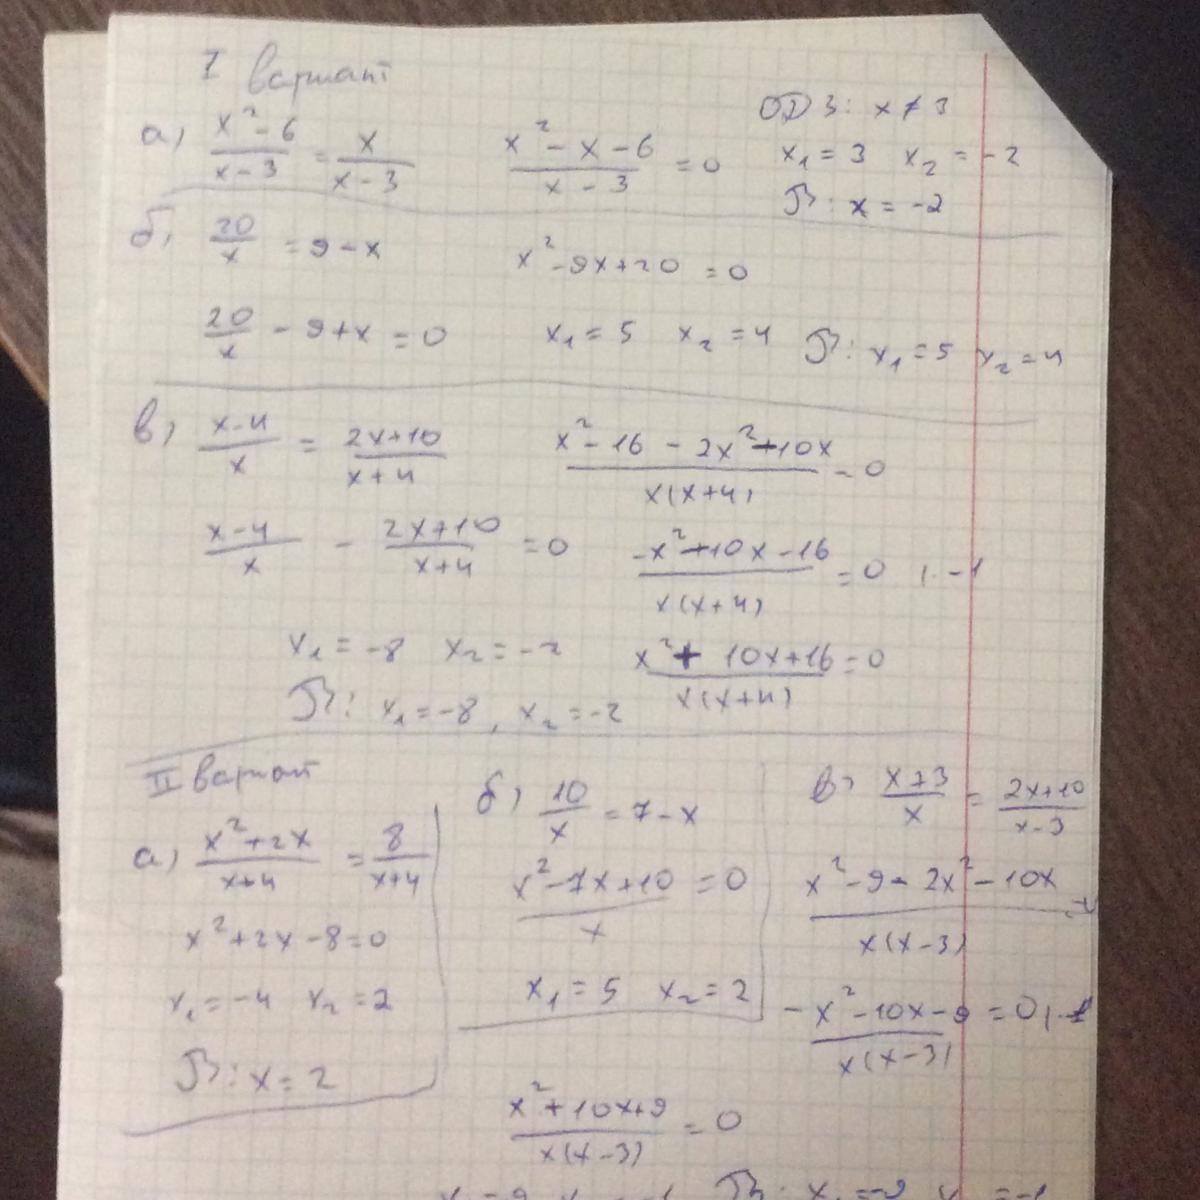 I вариант
а) (x² - 6)/(x - 3) = x/(x - 3)    (x² - x - 6)/(x - 3) = 0    ОДЗ: x ≠ 3
x₁ = 3  x₂ = -2
: x = -2
б) 20/x = 9 - x    x² - 9x + 20 = 0
20/x - 9 + x = 0    x₁ = 5  x₂ = 4    : x₁ = 5  x₂ = 4
в) (x - 4)/x = (2x + 10)/(x + 4)    (x² - 16 - 2x² - 10x)/(x(x + 4)) = 0
(x - 4)/x - (2x + 10)/(x + 4) = 0    (-x² - 10x - 16)/(x(x + 4)) = 0 | · -1
x₁ = -8  x₂ = -2    (x² + 10x + 16)/(x(x + 4)) = 0
: x₁ = -8, x₂ = -2
II вариант
а) (x² + 2x)/(x + 4) = 8/(x + 4)
x² + 2x - 8 = 0
x₁ = -4  x₂ = 2
: x = 2
б) 10/x = 7 - x
(x² - 7x + 10)/x = 0
x₁ = 5  x₂ = 2
в) (x + 3)/x = (2x + 10)/(x - 3)
(x² - 9 - 2x² - 10x)/(x(x - 3))
(-x² - 10x - 9)/(x(x - 3)) = 0 | · -1
(x² + 10x + 9)/(x(x - 3)) = 0